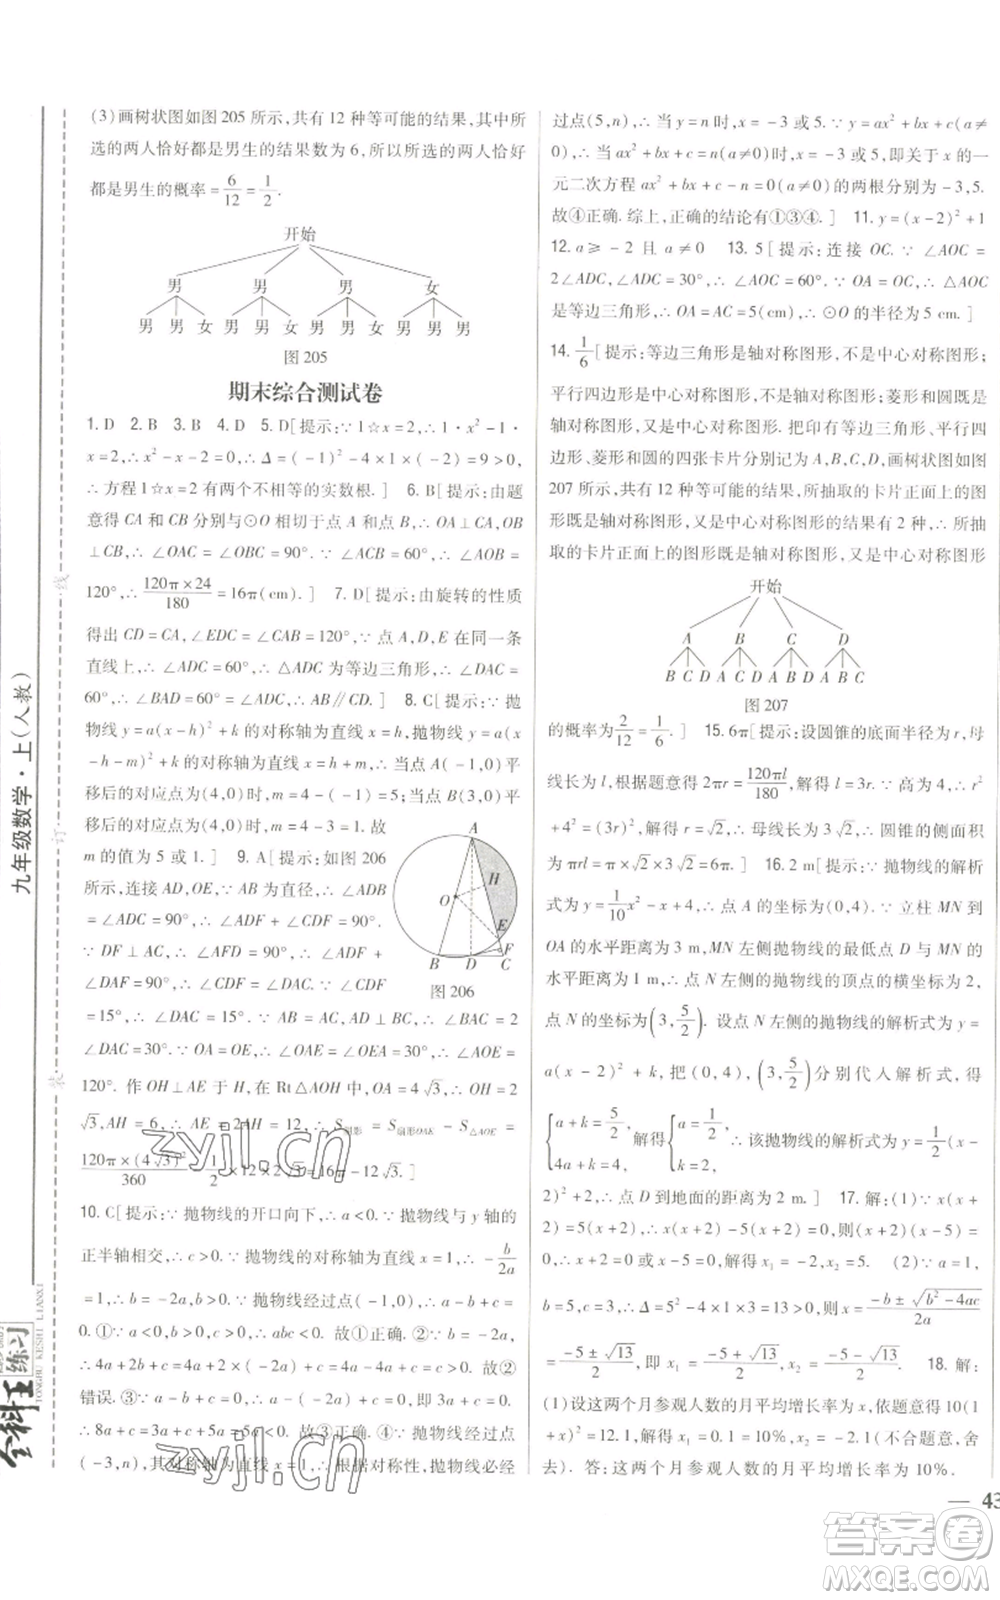 (3)画树状图如图 205 所示,共有 12 种等可能的结果,其中所
选的两人恰好都是男生的结果数为 6,所以所选的两人恰好
都是男生的概率=6/12=1/2.
开始
男 男 男 女
男 男 女 男 男 女 男 男 女 男 男 男
图 205
期末综合测试卷
1. D 2. B 3. B 4. D 5. D[提示:∵1☆x=2,∴1·x²-1·
x=2,∴x²-x-2=0,∴Δ=(-1)²-4×1×(-2)=9>0,
∴方程1☆x=2 有两个不相等的实数根.] 6. B[提示:由题
意得 CA 和 CB 分别与⊙O 相切于点 A 和点 B,∴OA⊥CA,OB
⊥CB,∴∠OAC=∠OBC=90°.∵∠ACB=60°,∴∠AOB=
120°,∴120π×24/180=16π(cm).] 7. D[提示:由旋转的性质
得出 CD=CA,∠EDC=∠CAB=120°,∵点 A,D,E 在同一条
直线上,∴∠ADC=60°,∴△ADC 为等边三角形,∴∠DAC=
60°,∴∠BAD=60°=∠ADC,∴AB∥CD.] 8. C[提示:∵抛
物线 y=a(x-h)²+k 的对称轴为直线 x=h,抛物线 y=a(x
-h-m)²+k 的对称轴为直线 x=h+m,∴当点 A(-1,0)平
移后的对应点为(4,0)时,m=4-(-1)=5;当点 B(3,0)平
移后的对应点为(4,0)时,m=4-3=1.故
m 的值为 5 或 1.] 9. A[提示:如图 206
所示,连接 AD,OE,∵AB 为直径,∴∠ADB
=∠ADC=90°,∴∠ADF+∠CDF=90°.
∵DF⊥AC,∴∠AFD=90°,∴∠ADF+
∠DAF=90°,∴∠CDF=∠DAC
=15°,∴∠DAC=15°.∵AB=AC,AD⊥BC,∴∠BAC=2
∠DAC=30°.∵OA=OE,∴∠OAE=∠OEA=30°,∴∠AOE=
120°.作 OH⊥AE 于 H,在 Rt△AOH 中,OA=4√3,∴OH=2
√3,AH=6,∴AE=2AH=12,∴S阴影=S扇形OAE-S△AOE=
120π×(4√3)²/360-1/2×12×2√3=16π-12√3.]
A
H
O
E
F
B D C
图 206
10. C[提示:∵抛物线的开口向下,∴a<0.∵抛物线与 y 轴的
正半轴相交,∴c>0.∵抛物线的对称轴为直线 x=1,∴-b/2a
=1,∴b=-2a,∵抛物线经过点(-1,0),∴a-b+c=
0.∴①
错误.③
∵抛物线经过点
(-3,n),其对称轴为直线 x=1,∴根据对称性,抛物线必经
过点(5,n),∴当 y=n 时,x=-3 或 5.∵y=ax²+bx+c(a≠
0),∴当 ax²+bx+c=n(a≠0)时,x=-3 或 5,即关于 x 的一
元二次方程 ax²+bx+c=n(a≠0)的两根分别为-3,5.
故④正确.综上,正确的结论有①③④.] 11. y=(x-2)²+1
12. a≥-2 且 a≠0 13. 5[提示:连接 OC.∵∠AOC=
2∠ADC,∠ADC=30°,∴∠AOC=60°.∵OA=OC,∴△AOC
为等边三角形,∴OA=AC=5(cm),∴⊙O 的半径为 5 cm.]
14. 1/6[提示:等边三角形是轴对称图形,不是中心对称图形,
平行四边形是中心对称图形,不是轴对称图形,菱形和圆既是轴
对称图形,又是中心对称图形.把印有等边三角形、平行四
边形、菱形和圆的四张卡片分别记为 A,B,C,D,画树状图如图
207 所示,共有 12 种等可能的结果,所抽取的卡片正面上的图
形既是轴对称图形,又是中心对称图形的结果有 2 种,∴所抽
取的卡片正面上的图形既是轴对称图形,又是中心对称图形
开始
A B C D
B C D A C D A B D A B C
图 207
的概率为2/12=1/6.] 15. 6π[提示:设圆锥的底面半径为 r,母
线长为 l,根据题意得 2πr=120πl/180,解得 l=3r.∵r²
+4²=(3r)²,解得 r=√2,∴母线长为 3√2,∴圆锥的侧面积
为 πrl=π×√2×3√2=6π.] 16. 2 m[提示:∵抛物线的解析
式为 y=1/10x²-x+4,∴点 A 的坐标为(0,4).∵立柱 MN 到
OA 的水平距离为 3 m,MN 左侧抛物线的最低点 D 与 MN 的
水平距离为 1 m,∴点 N 左侧的抛物线的顶点的横坐标为 2,
点 N 的坐标为(3,5/2).设点 N 左侧的抛物线的解析式为 y=
a(x-2)²+k,把(0,4),(3,5/2)分别代入解析式,得
{a+k=5/2, 4a+k=4,解得{a=1/2, k=2,∴该抛物线的解析式为 y=1/2(x-
2)²+2,∴点 D 到地面的距离为 2 m.] 17. 解:(1)∵x(x+
2)=5(x+2),∴x(x+2)-5(x+2)=0,则(x+2)(x-5)=
0,∴x+2=0 或 x-5=0,解得 x₁=-2,x₂=5. (2)∵a=1,
b=5,c=3,∴Δ=5²-4×1×3=13>0,则 x=-b±√b²-4ac/2a=
-5±√13/2,即 x₁=-5+√13/2,x₂=-5-√13/2. 18. 解:
(1)设这两个月参观人数的月平均增长率为 x,依题意得 10(1
+x)²=12.1,解得 x₁=0.1=10%,x₂=-2.1(不合题意,舍
去).答:这两个月参观人数的月平均增长率为 10%.
— 43
九年级数学·上(人教)
线
订
装
全科王
练习
TONGBU KESHI LIANXI
zyjl.cn
zyjl.cn
答案卷
MXQE.COM